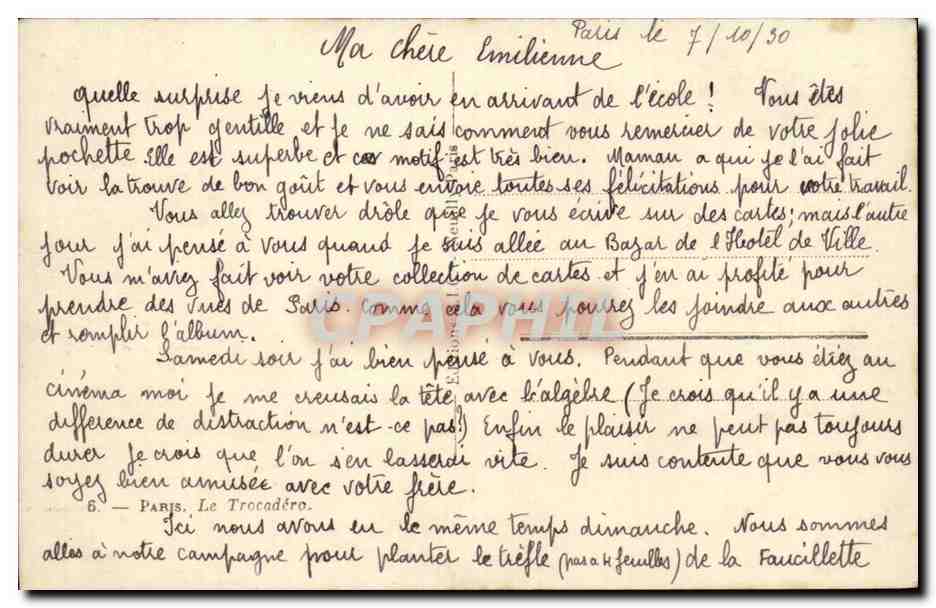 Paris le 7/10/30
Ma chère Emilienne
quelle surprise je viens d'avoir en arrivant de l'école ! Vous êtes
vraiment trop gentille et je ne sais comment vous remercier de votre jolie
pochette Elle est superbe et ce motif est très bien. Maman a qui je l'ai fait
voir la trouve de bon goût et vous envoie toutes ses félicitations pour votre travail.
Vous allez trouver drôle que je vous écrive sur des cartes; mais l'autre
jour j'ai pensé à vous quand je suis allée au Bazar de l'Hotel de Ville.
Vous m'avez fait voir votre collection de cartes et j'en ai profité pour
prendre des vues de Paris. comme cela vous pourrez les joindre aux autres
et remplir l'album.
CPAPHIL
Samedi soir j'ai bien pensé à vous. Pendant que vous étiez au
cinéma moi je me creusais la tête avec l'algèbre (Je crois qu'il y a une
différence de distraction n'est-ce pas?) Enfin le plaisir ne peut pas toujours
durer je crois que l'on s'en lasserai vite. Je suis contente que vous vous
soyez bien amusée avec votre frère.
6. — PARIS. Le Trocadéro.
Ici nous avons eu le même temps dimanche. Nous sommes
allés à notre campagne pour planter le trèfle (pas a 4 feuilles) de la Faucillette